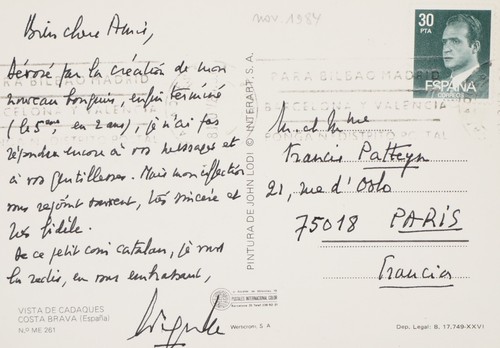 nov. 1984
Bien chers Amis,
Dévoré par la création de mon
nouveau bouquin, enfin terminé
(le 5ème, en 2 ans), je n'ai pas
répondre encore à vos messages et
à vos gentillesses. Mais mon affection
vous rejoint souvent, très sincère et
très fidèle.
De ce petit coin catalan, je vous
la redis, en vous embrassant,
VISTA DE CADAQUES
COSTA BRAVA (España)
N.º ME 261
PINTURA DE JOHN LODI © INTERART, S. A.
POSTALES INTERNACIONAL COLOR
Werncrom. S A
30
PTA
ESPAÑA
CORREOS
PARA BILBAO MADRID
BARCELONA Y VALENCIA
M. et Mme
Francis Patteyn
21, rue d'Oslo
75018 PARIS
Francia
Dep. Legal: B. 17,749-XXVI